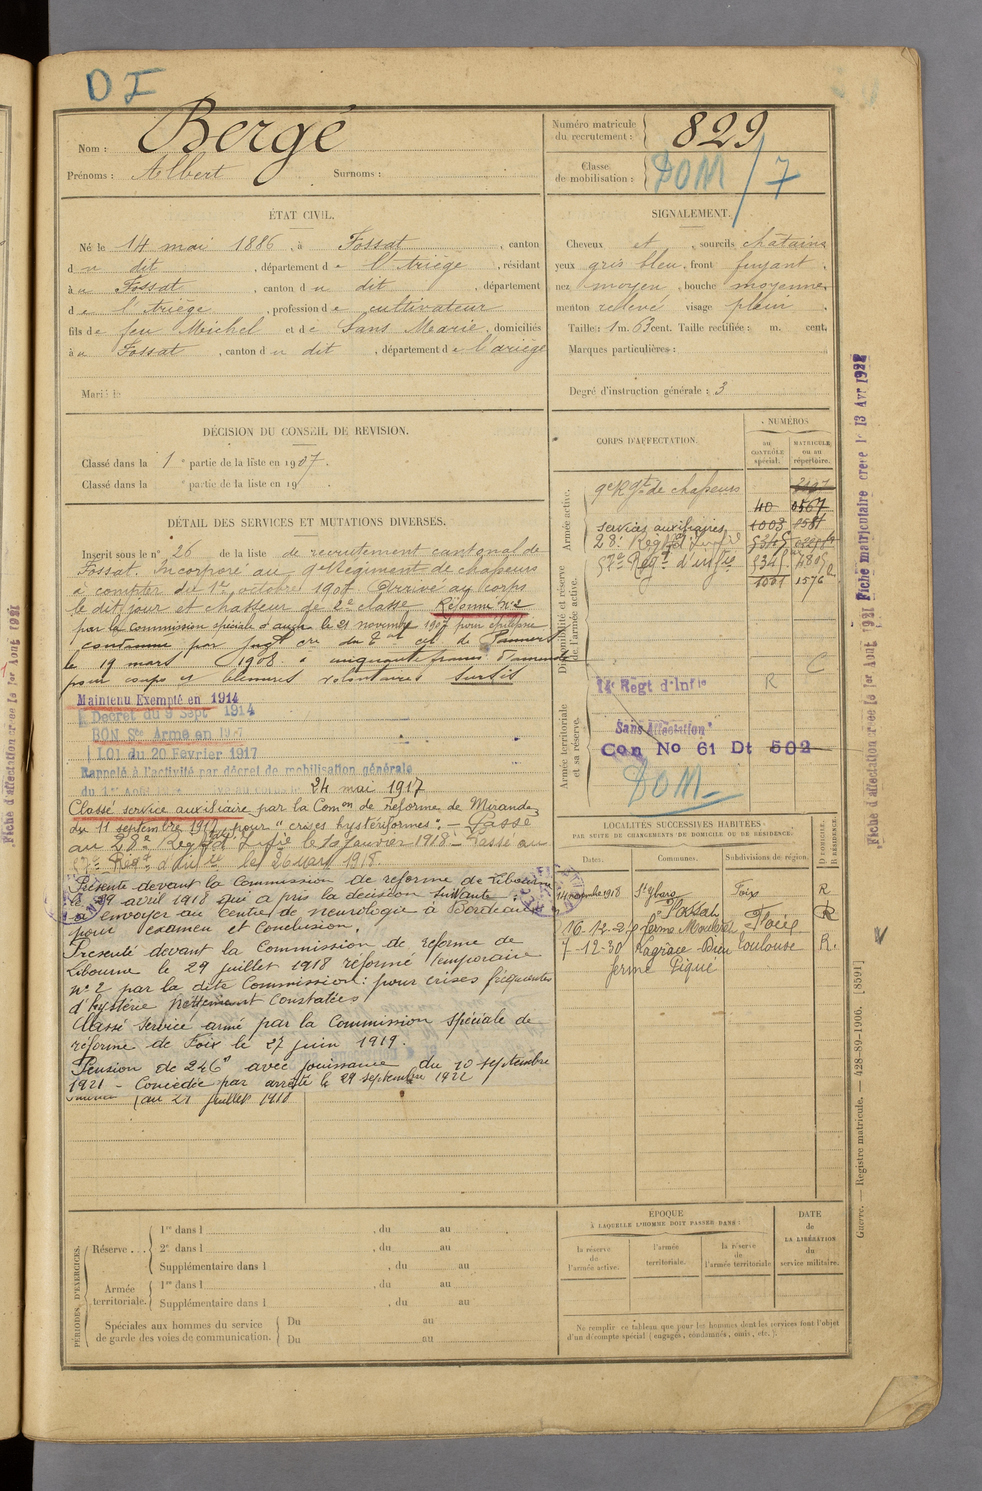 DI
Nom : Bergé
Prénoms : Albert Surnoms :
Numéro matricule du recrutement : 829
Classe de mobilisation : DOM / 7
ÉTAT CIVIL.
Né le 14 mai 1886, à Fossat, canton
du dit, département de l'Ariège, résidant
à u Fossat, canton du dit, département
de l'Ariège, profession de cultivateur
fils de feu Michel et de Sans Marie, domiciliés
à u Fossat, canton du dit, département de l'ariège
Marié le
SIGNALEMENT.
Cheveux et sourcils chatains
yeux gris bleu, front fuyant
nez moyen, bouche moyenne
menton relevé visage plein
Taille : 1 m. 63 cent. Taille rectifiée : m. cent.
Marques particulières :
Degré d'instruction générale : 3
DÉCISION DU CONSEIL DE REVISION.
Classé dans la 1e partie de la liste en 1907.
Classé dans la e partie de la liste en 19
DÉTAIL DES SERVICES ET MUTATIONS DIVERSES.
Inscrit sous le n° 26 de la liste de recrutement cantonal de
Fossat. Incorporé au 9e Régiment de chasseurs
à compter du 1er octobre 1907. Arrivé au corps
le dit jour et chasseur de 2e classe Réformé n° 2
par la commission spéciale d'auch le 21 novembre 1907 pour épilepsie
condamné par jugt du de Pamiers
le 19 mars 1908 à cinquante francs d'amende
pour coups et blessures volontaires Sursis
Maintenu Exempté en 1914
Décret du 9 Sept 1914
BON Sce Armé en 1917
LOI du 20 Février 1917
Rappelé à l'activité par décret de mobilisation générale
24 mai 1917
Classé service auxiliaire par la Comon de réforme de Mirande
du 11 septembre 1917 pour "crises hystériformes". — Passé
au 28e Regt d'Infie le 10 Janvier 1918 — Passé au
57e Regt d'infie le 26 mars 1918.
Présenté devant la Commission de réforme de Libourne
le 29 avril 1918 qui a pris la décision suivante :
à envoyer au Centre de neurologie à Bordeaux
pour examen et conclusion.
Présenté devant la Commission de réforme de
Libourne le 29 juillet 1918 réformé temporaire
n° 2 par la dite Commission : pour crises fréquentes
d'hystérie nettement constatées
Classé service armé par la Commission spéciale de
réforme de Foix le 27 juin 1919.
Pension de 246f avec jouissance du 10 septembre
1921 - Concédée par arrêté le 29 septembre 1922
au 29 juillet 1918
CORPS D'AFFECTATION.
NUMÉROS
DU CONTRÔLE spécial.
MATRICULE ou au répertoire.
Armée active.
9e Rgt de chasseurs
40 0567
services auxiliaires 1003
28e Regt d'Infie 5345
57e Regt d'infie 5345
1001 1576
Disponibilité et réserve de l'armée active.
C
14e Regt d'Infie R
Armée territoriale et sa réserve.
Sans Affectation
Con No 61 Dt 502
DOM
LOCALITÉS SUCCESSIVES HABITÉES
PAR SUITE DE CHANGEMENTS DE DOMICILE OU DE RÉSIDENCE.
Dates. Communes. Subdivisions de région. D DOMICILE. R RÉSIDENCE.
1918 St Ybars Foix R
Fossat R
16-12-29 ferme Foix
7-12-30 Lagrace-Dieu Toulouse R.
ferme Piqué
PÉRIODES D'EXERCICES.
Réserve... 1re dans l , du au
2e dans l , du au
Supplémentaire dans l , du au
Armée territoriale. 1re dans l , du au
Supplémentaire dans l , du au
Spéciales aux hommes du service de garde des voies de communication. Du au
Du au
ÉPOQUE
À LAQUELLE L'HOMME DOIT PASSER DANS :
la réserve de l'armée active.
l'armée territoriale.
la réserve de l'armée territoriale
DATE de LA LIBÉRATION du service militaire.
Ne remplir ce tableau que pour les hommes dont les services font l'objet
d'un décompte spécial (engagés, condamnés, omis, etc.).
Fiche d'affectation créée le 1er Aout 1921 Fiche matriculaire créée le 13 Avr 1922
Guerre. — Registre matricule. — 428-89-1906. [8591]
Fiche d'affectation créée le 1er Aout 1921